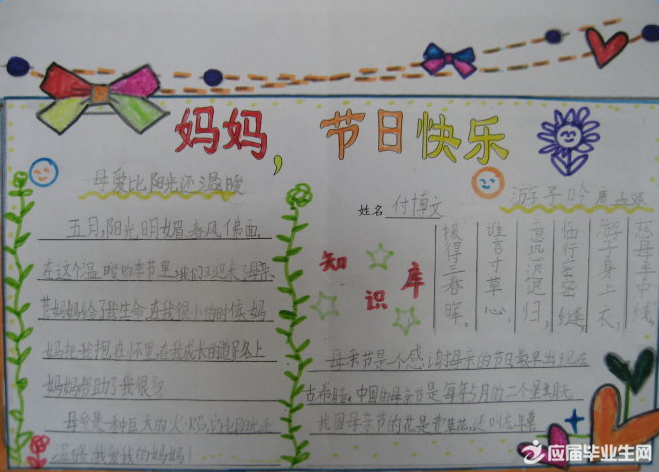 妈妈，节日快乐
母爱比阳光还温暖
五月，阳光明媚，春风佛面，
在这个温暖的季节里，我们又迎来了母亲
节妈妈给了我生命，在我很小的时候，妈
妈把我抱在怀里，在我成长的道路上
妈妈帮助了我很多
母爱是一种巨大的火焰，它比阳光还
温暖，我爱我的妈妈！
姓名 付博文
游子吟 唐 孟郊
慈母手中线，
游子身上衣，
临行密密缝，
意恐迟迟归，
谁言寸草心，
报得三春晖。
知识库
母亲节是一个感谢母亲的节日最早出现在
古希腊，中国的母亲节是每年5月的二个星期天
我国母亲节的花是萱草花，还叫忘
应届毕业生网